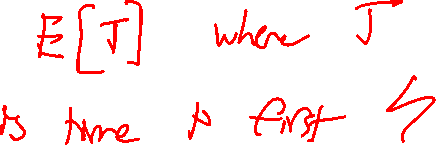 E[T] where T
is time to first 5